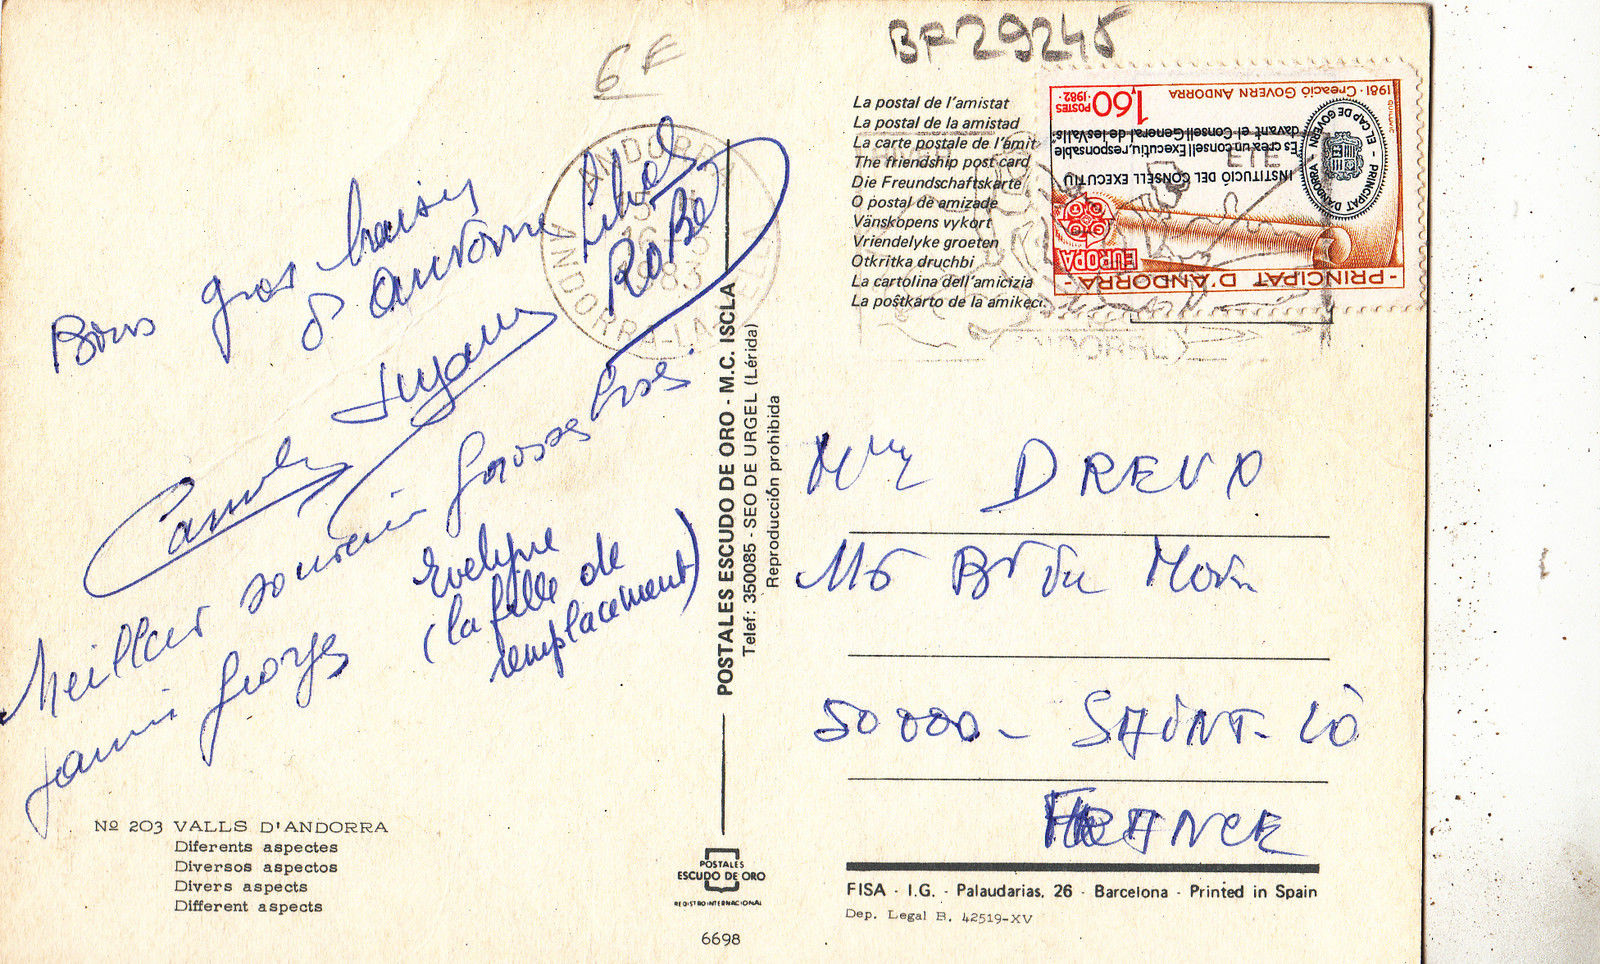 BF 29245
6 F
Bons gros baisers
d'Andorre
Meilleur souvenir Grosses Bises
Evelyne
(la fille de
remplacement)
Nº 203 VALLS D'ANDORRA
Diferents aspectes
Diversos aspectos
Divers aspects
Different aspects
ANDORRA
1983
POSTALES ESCUDO DE ORO - M.C. ISCLA
Telef: 350085 - SEO DE URGEL (Lérida)
Reproducción prohibida
POSTALES
ESCUDO DE ORO
REGISTRO INTERNACIONAL
6698
La postal de l'amistat
La postal de la amistad
La carte postale de l'amit
The friendship post card
Die Freundschaftskarte
O postal de amizade
Vänskopens vykort
Vriendelyke groeten
Otkritka druchbi
La cartolina dell'amicizia
La postkarto de la amikec
- PRINCIPAT D'ANDORRA -
EUROPA
INSTITUCIÓ DEL CONSELL EXECUTIU
Es crea un consell Executiu, responsable
davant el Consell General de les Valls
PRINCIPAT D'ANDORRA - EL CAP DE GOVERN
1,60 POSTES 1982
1981 - Creació GOVERN ANDORRA
DREUX
50 000 - SAINT-LÔ
FRANCE
FISA - I.G. - Palaudarias, 26 - Barcelona - Printed in Spain
Dep. Legal B. 42519-XV